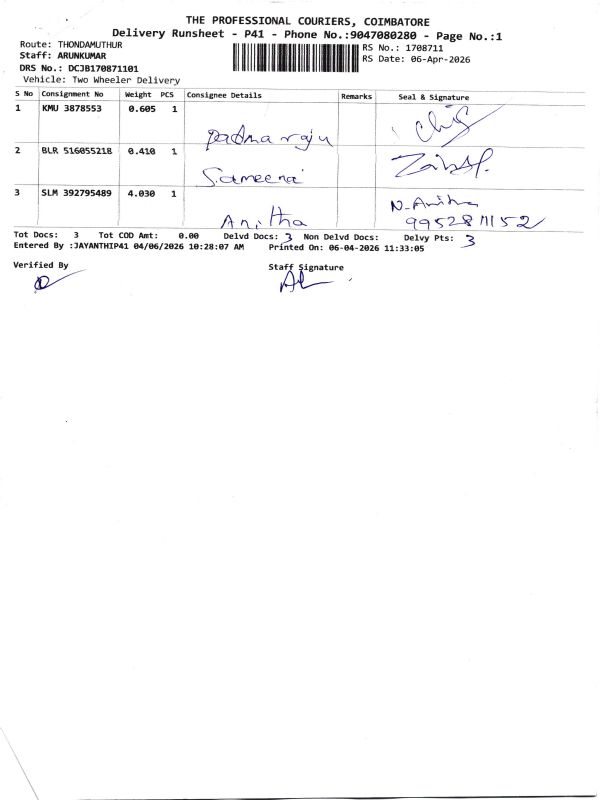 THE PROFESSIONAL COURIERS, COIMBATORE
Delivery Runsheet - P41 - Phone No.:9047080280 - Page No.:1
Route: THONDAMUTHUR
Staff: ARUNKUMAR
DRS No.: DCJB170871101
Vehicle: Two Wheeler Delivery
RS No.: 1708711
RS Date: 06-Apr-2026
S No Consignment No Weight PCS Consignee Details Remarks Seal & Signature
1 KMU 3878553 0.605 1
Padma raju
2 BLR 516055218 0.410 1
Sameena
3 SLM 392795489 4.030 1
Anitha N. Anitha
9952871152
Tot Docs: 3 Tot COD Amt: 0.00 Delvd Docs: 3 Non Delvd Docs: Delvy Pts: 3
Entered By :JAYANTHIP41 04/06/2026 10:28:07 AM Printed On: 06-04-2026 11:33:05
Verified By Staff Signature